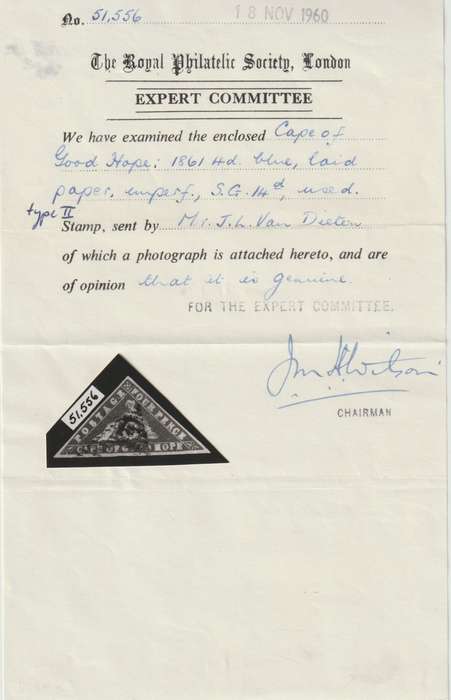 No. 51,556
18 NOV 1960
The Royal Philatelic Society, London
EXPERT COMMITTEE
We have examined the enclosed Cape of
Good Hope: 1861 4d. blue, laid
paper, imperf., S.G. 14d, used.
type II
Stamp, sent by Mr. J.L. Van Dieten
of which a photograph is attached hereto, and are
of opinion that it is genuine.
FOR THE EXPERT COMMITTEE.
CHAIRMAN
51,556
POSTAGE
FOUR PENCE
CAPE OF HOPE